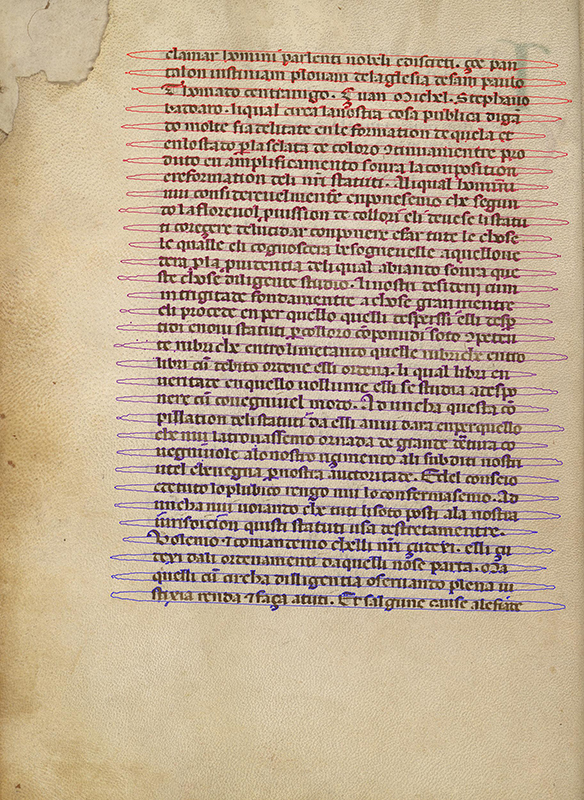 clamar homini parlenti nobeli ediscreti. çoe pan
talon iustinian plouam delaglesia desam paulo
Thomado centranigo. Çuan Michel. Stephano
badoaro. liqual circa lanostra cosa publica digã
do molte fiadelitate enle formation dequela et
enlostado p̃la selata de coloro 9tinuamentre pro
duto en amplificamento soura la conposition
ereformation deli nr̃i statuti. Ali qual homini
nui considereuelmentre enponesemo che segun
do la floreuol puission de colloro eli deuese li statu
ti coregere delucidar conponere efar tute le chose
le qualle eli cognoscera le besogneuelle. aquellone
dera p la prudencia deli qual abiando soura que
ste chose diligente studio. Li nostri desiderij cum
integritade fondamentre a chose gran mentre
eli procede en per quello quelli despersi elli desp̃
tidi enoui statuti p colloro cõponudi soto 9peten
te rubriche entro lime tanto quelle rubriche entro
libri cũ debito ordene elli ordena. li qual libri en
uentate en quello vollume elli se studia adespo
nere cũ couegniuel modo. Aduncha questa cõ
pillation deli statuti da elli a nui dara enperquello
che nui la trouassemo ornada de grande uentura co
uegniuole alo nostro regimento ali subditi nostri
utel che uegnia p nostra auctoritade. Edel conseio
edetuto lo plubico rengo nui lo confermasemo. Ad
uncha nui uoiando che tuti li soto posti ala nostra
iurisdicion quisti statuti usa destretamentre.
Volemo 7 comandemo che elli nr̃i çudexi. elli çu
dexi dali ordenamenti daquelli nose parta. Ma
quelli cũ circha diligentia oseruando plena iu
stixia renda 7 faça atuti. Et sal gune cause alefiate